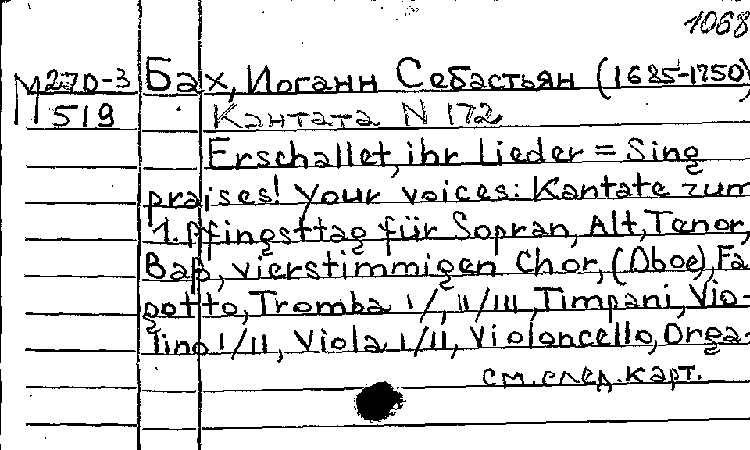 1068
М270-3 Бах, Иоганн Себастьян (1685-1750)
519 Кантата N 172
Erschallet, ihr Lieder = Sing
praises! Your voices: Kantate zum
1. Pfingsttag für Sopran, Alt, Tenor,
Baß, vierstimmigen Chor, (Oboe), Fa
gotto, Tromba I/, II/III, Timpani, Vio-
lino I/II, Viola I/II, Violoncello, Orga-
см. след. карт.